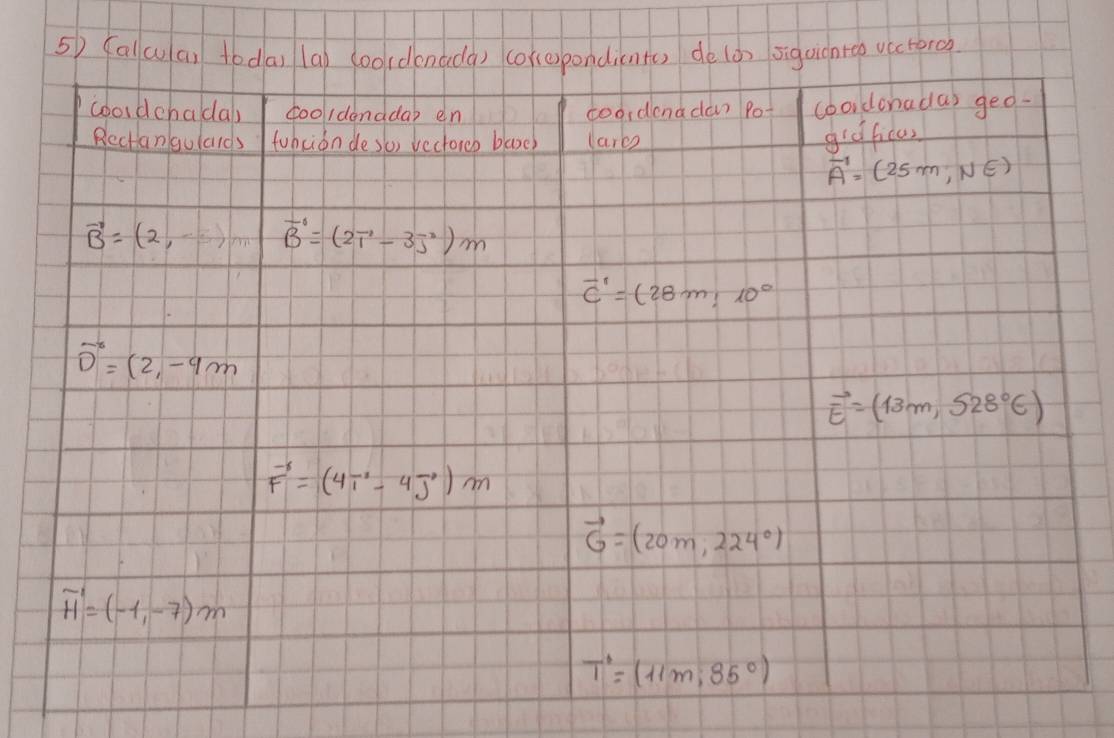 5) Calcular todas las coordenadas correspondientes de los siguientes vectores
coordenadas Rectangulares
coordenadas en función de sus vectores bases
coordenadas Polares
coordenadas geográficas
A⃗ = (25m, NE)
B⃗ = (2, -
B⃗ = (2i⃗ - 3j⃗) m
C⃗ = (28m; 10°
D⃗ = (2, -9m
E⃗ = (13m, S28°E)
F⃗ = (4i⃗ - 4j⃗) m
G⃗ = (20m; 224°)
H⃗ = (-1, -7) m
I⃗ = (11m; 85°)